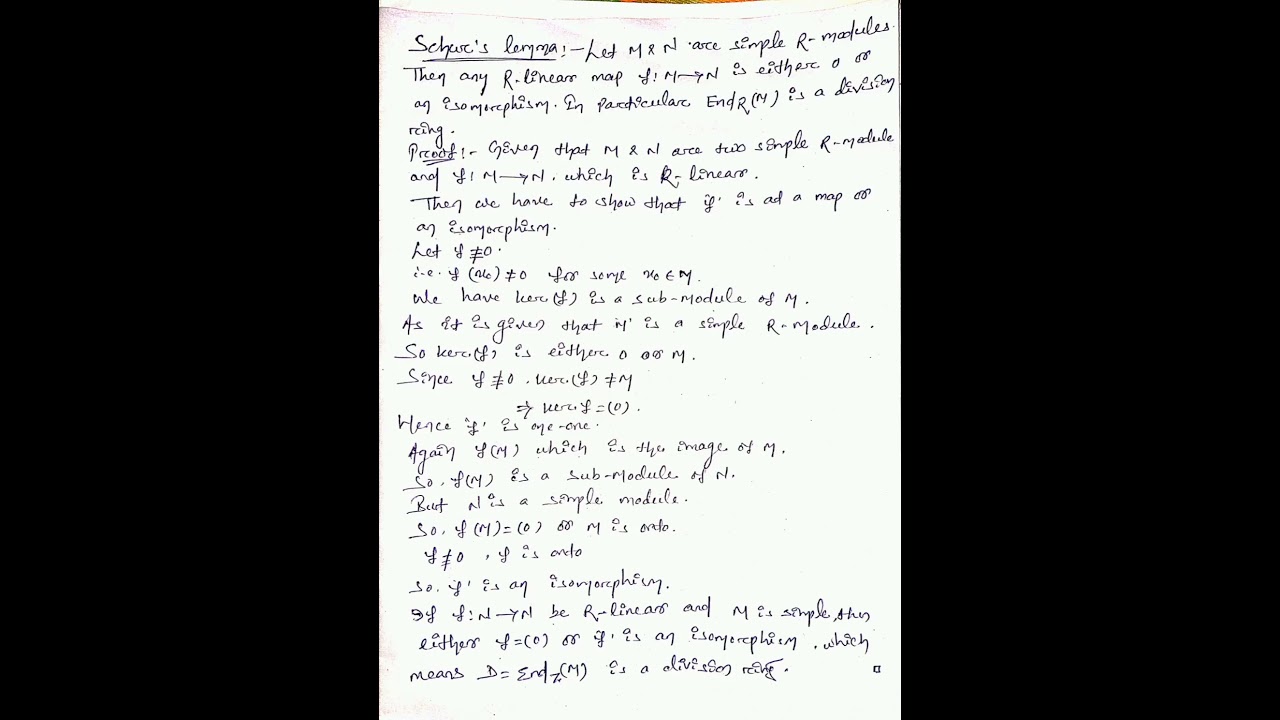 Schur's lemma:- Let M & N are simple R-modules.
Then any R-linear map f: M → N is either 0 or
an isomorphism. In particular End_R(M) is a division
ring.
Proof:- Given that M & N are two simple R-module
and f: M → N, which is R-linear.
Then we have to show that 'f' is ad a map or
an isomorphism.
Let f ≠ 0.
i.e. f(x₀) ≠ 0 for some x₀ ∈ M.
We have ker(f) is a sub-module of M.
As it is given that 'M' is a simple R-Module.
So ker(f) is either 0 or M.
Since f ≠ 0, ker(f) ≠ M
⇒ ker f = (0).
Hence 'f' is one-one.
Again f(M) which is the image of M.
So, f(M) is a sub-module of N.
But N is a simple module.
So, f(M) = (0) or M is onto.
f ≠ 0, f is onto
So, 'f' is an isomorphism.
If f: N → N be R-linear and M is simple, then
either f = (0) or 'f' is an isomorphism, which
means D = End_Z(M) is a division ring.